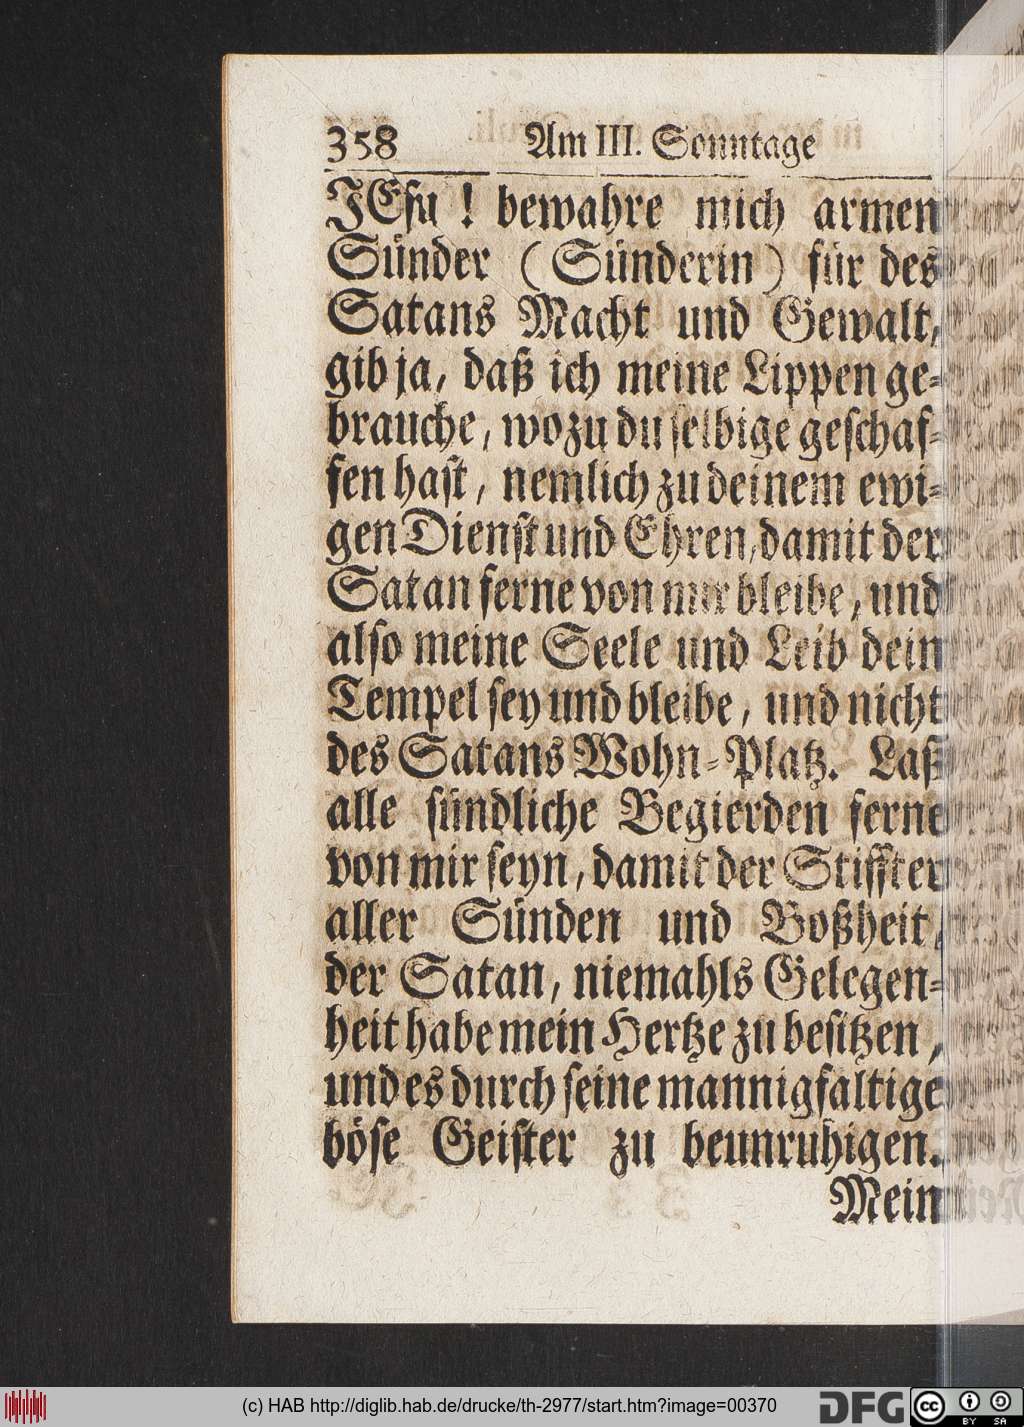 358 Am III. Sonntage
JEsu ! bewahre mich armen
Sünder ( Sünderin ) für des
Satans Macht und Gewalt,
gib ja, daß ich meine Lippen ge-
brauche, wozu du selbige geschaf-
fen hast, nemlich zu deinem ewi-
gen Dienst und Ehren, damit der
Satan ferne von mir bleibe, und
also meine Seele und Leib dein
Tempel sey und bleibe, und nicht
des Satans Wohn-Platz. Laß
alle sündliche Begierden ferne
von mir seyn, damit der Stiffter
aller Sünden und Boßheit,
der Satan, niemahls Gelegen-
heit habe mein Hertze zu besitzen,
und es durch seine mannigfaltige
böse Geister zu beunruhigen.
Mein
(c) HAB http://diglib.hab.de/drucke/th-2977/start.htm?image=00370
DFG
cc BY SA